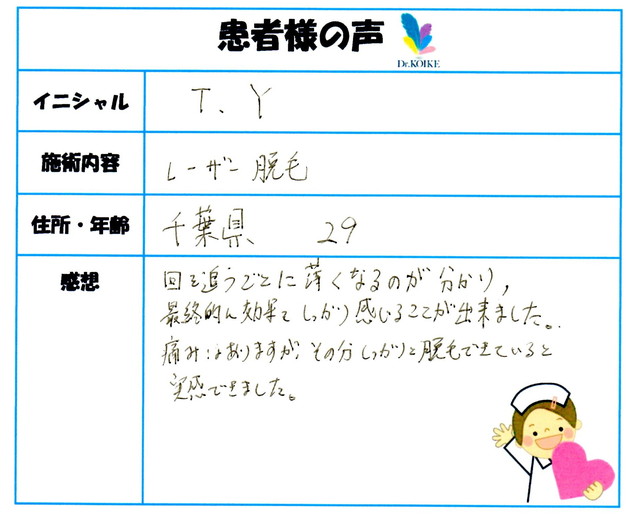 患者様の声
Dr.KOIKE
イニシャル T.Y
施術内容 レーザー脱毛
住所・年齢 千葉県 29
感想
回を追うごとに薄くなるのが分かり,
最終的に効果をしっかり感じることが出来ました。
痛みはありますが、その分しっかりと脱毛できていると
実感できました。